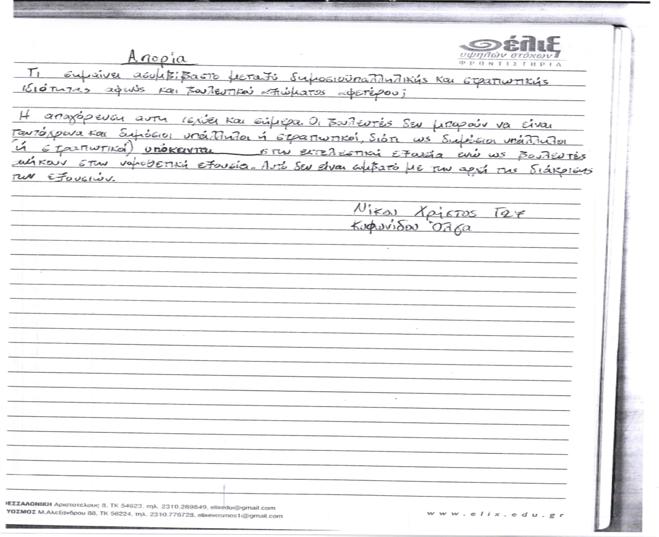 έλιξ
υψηλών στόχων
ΦΡΟΝΤΙΣΤΗΡΙΑ
Απορία
Τι σημαίνει ασυμβίβαστο μεταξύ δημοσιοϋπαλληλικής και στρατιωτικής
ιδιότητας αφενός και βουλευτικού αξιώματος αφετέρου;
Η απαγόρευση αυτή ισχύει και σήμερα. Οι βουλευτές δεν μπορούν να είναι
ταυτόχρονα και δημόσιοι υπάλληλοι ή στρατιωτικοί, διότι ως δημόσιοι υπάλληλοι
(ή στρατιωτικοί) υπόκεινται στην εκτελεστική εξουσία ενώ ως βουλευτές
ανήκουν στην νομοθετική εξουσία. Αυτό δεν είναι συμβατό με την αρχή της διάκρισης
των εξουσιών.
Νίκου Χρίστος Γ2γ
Κυφωνίδου Όλγα
ΘΕΣΣΑΛΟΝΙΚΗ Αριστοτέλους 8, ΤΚ 54623, τηλ. 2310.289849, elixedu@gmail.com
ΥΟΣΜΟΣ Μ.Αλεξάνδρου 88, ΤΚ 56224, τηλ. 2310.778728, elixevosmos1@gmail.com
www.elix.edu.gr